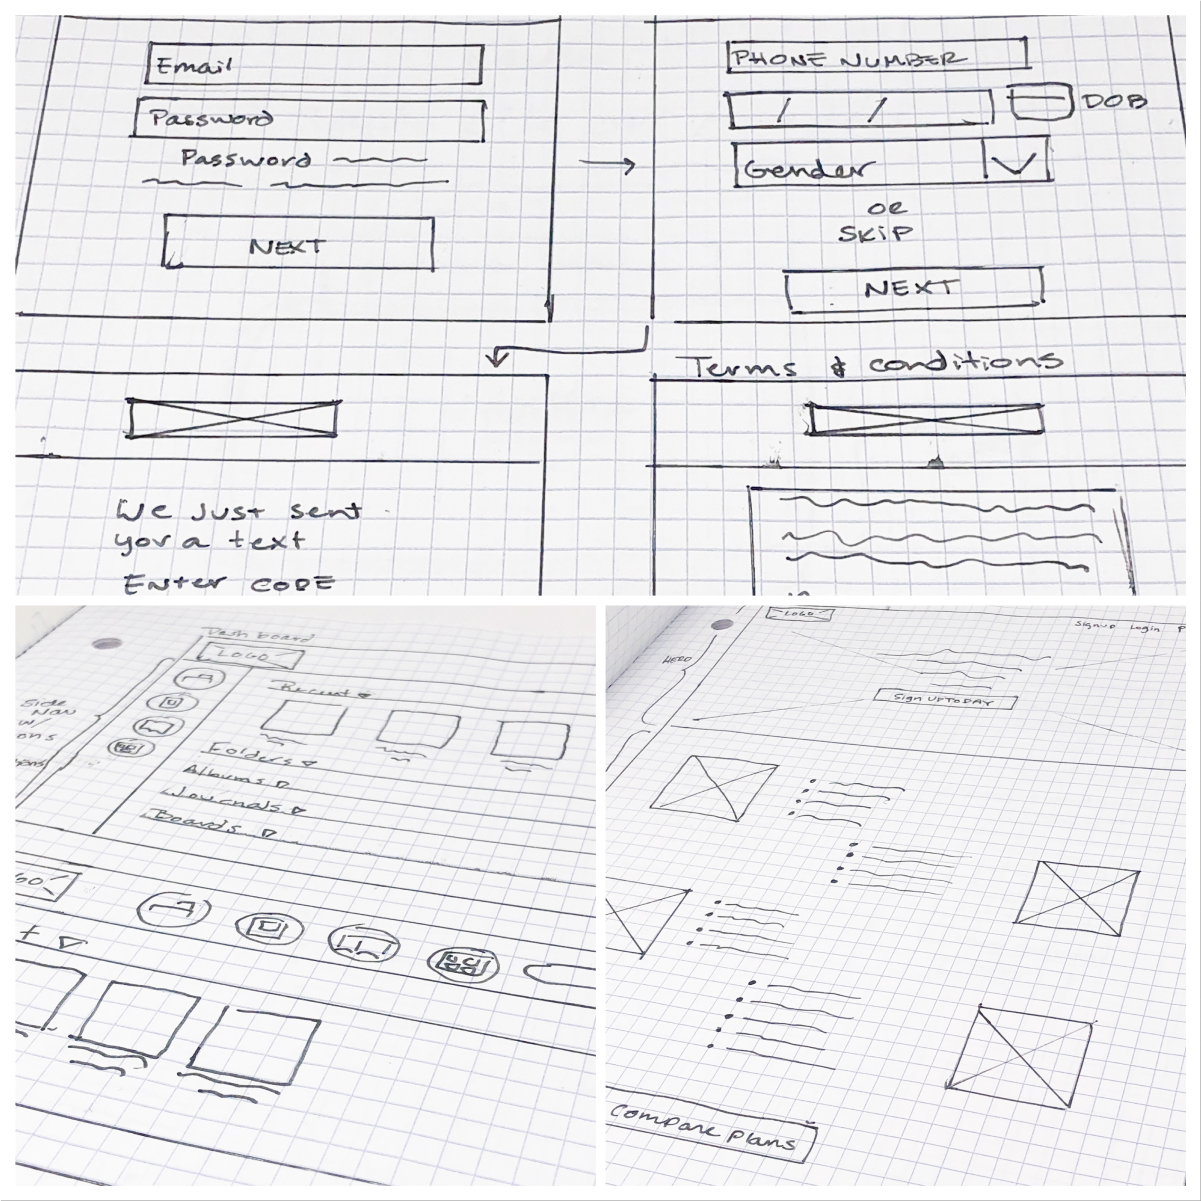 Email
Password
Password
NEXT
PHONE NUMBER
/ /
DOB
Gender
OR
SKIP
NEXT
We just sent
you a text
Enter CODE
Terms & conditions
Dashboard
LOGO
Side
Nav
w/
Recent
Folders
Albums
Journals
Boards
LOGO
Signup Login
HERO
Sign UP TODAY
Compare plans